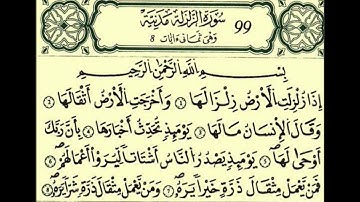 سُورَةُ الزَّلْزَلَةِ مَدَنِيَّة 99
وَهِيَ ثَمَانِي آيَات 8
بِسْمِ اللَّهِ الرَّحْمَٰنِ الرَّحِيمِ
إِذَا زُلْزِلَتِ الْأَرْضُ زِلْزَالَهَا ۝١ وَأَخْرَجَتِ الْأَرْضُ أَثْقَالَهَا ۝٢
وَقَالَ الْإِنسَانُ مَا لَهَا ۝٣ يَوْمَئِذٍ تُحَدِّثُ أَخْبَارَهَا ۝٤ بِأَنَّ رَبَّكَ
أَوْحَىٰ لَهَا ۝٥ يَوْمَئِذٍ يَصْدُرُ النَّاسُ أَشْتَاتًا لِّيُرَوْا أَعْمَالَهُمْ ۝٦
فَمَن يَعْمَلْ مِثْقَالَ ذَرَّةٍ خَيْرًا يَرَهُ ۝٧ وَمَن يَعْمَلْ مِثْقَالَ ذَرَّةٍ شَرًّا يَرَهُ ۝٨